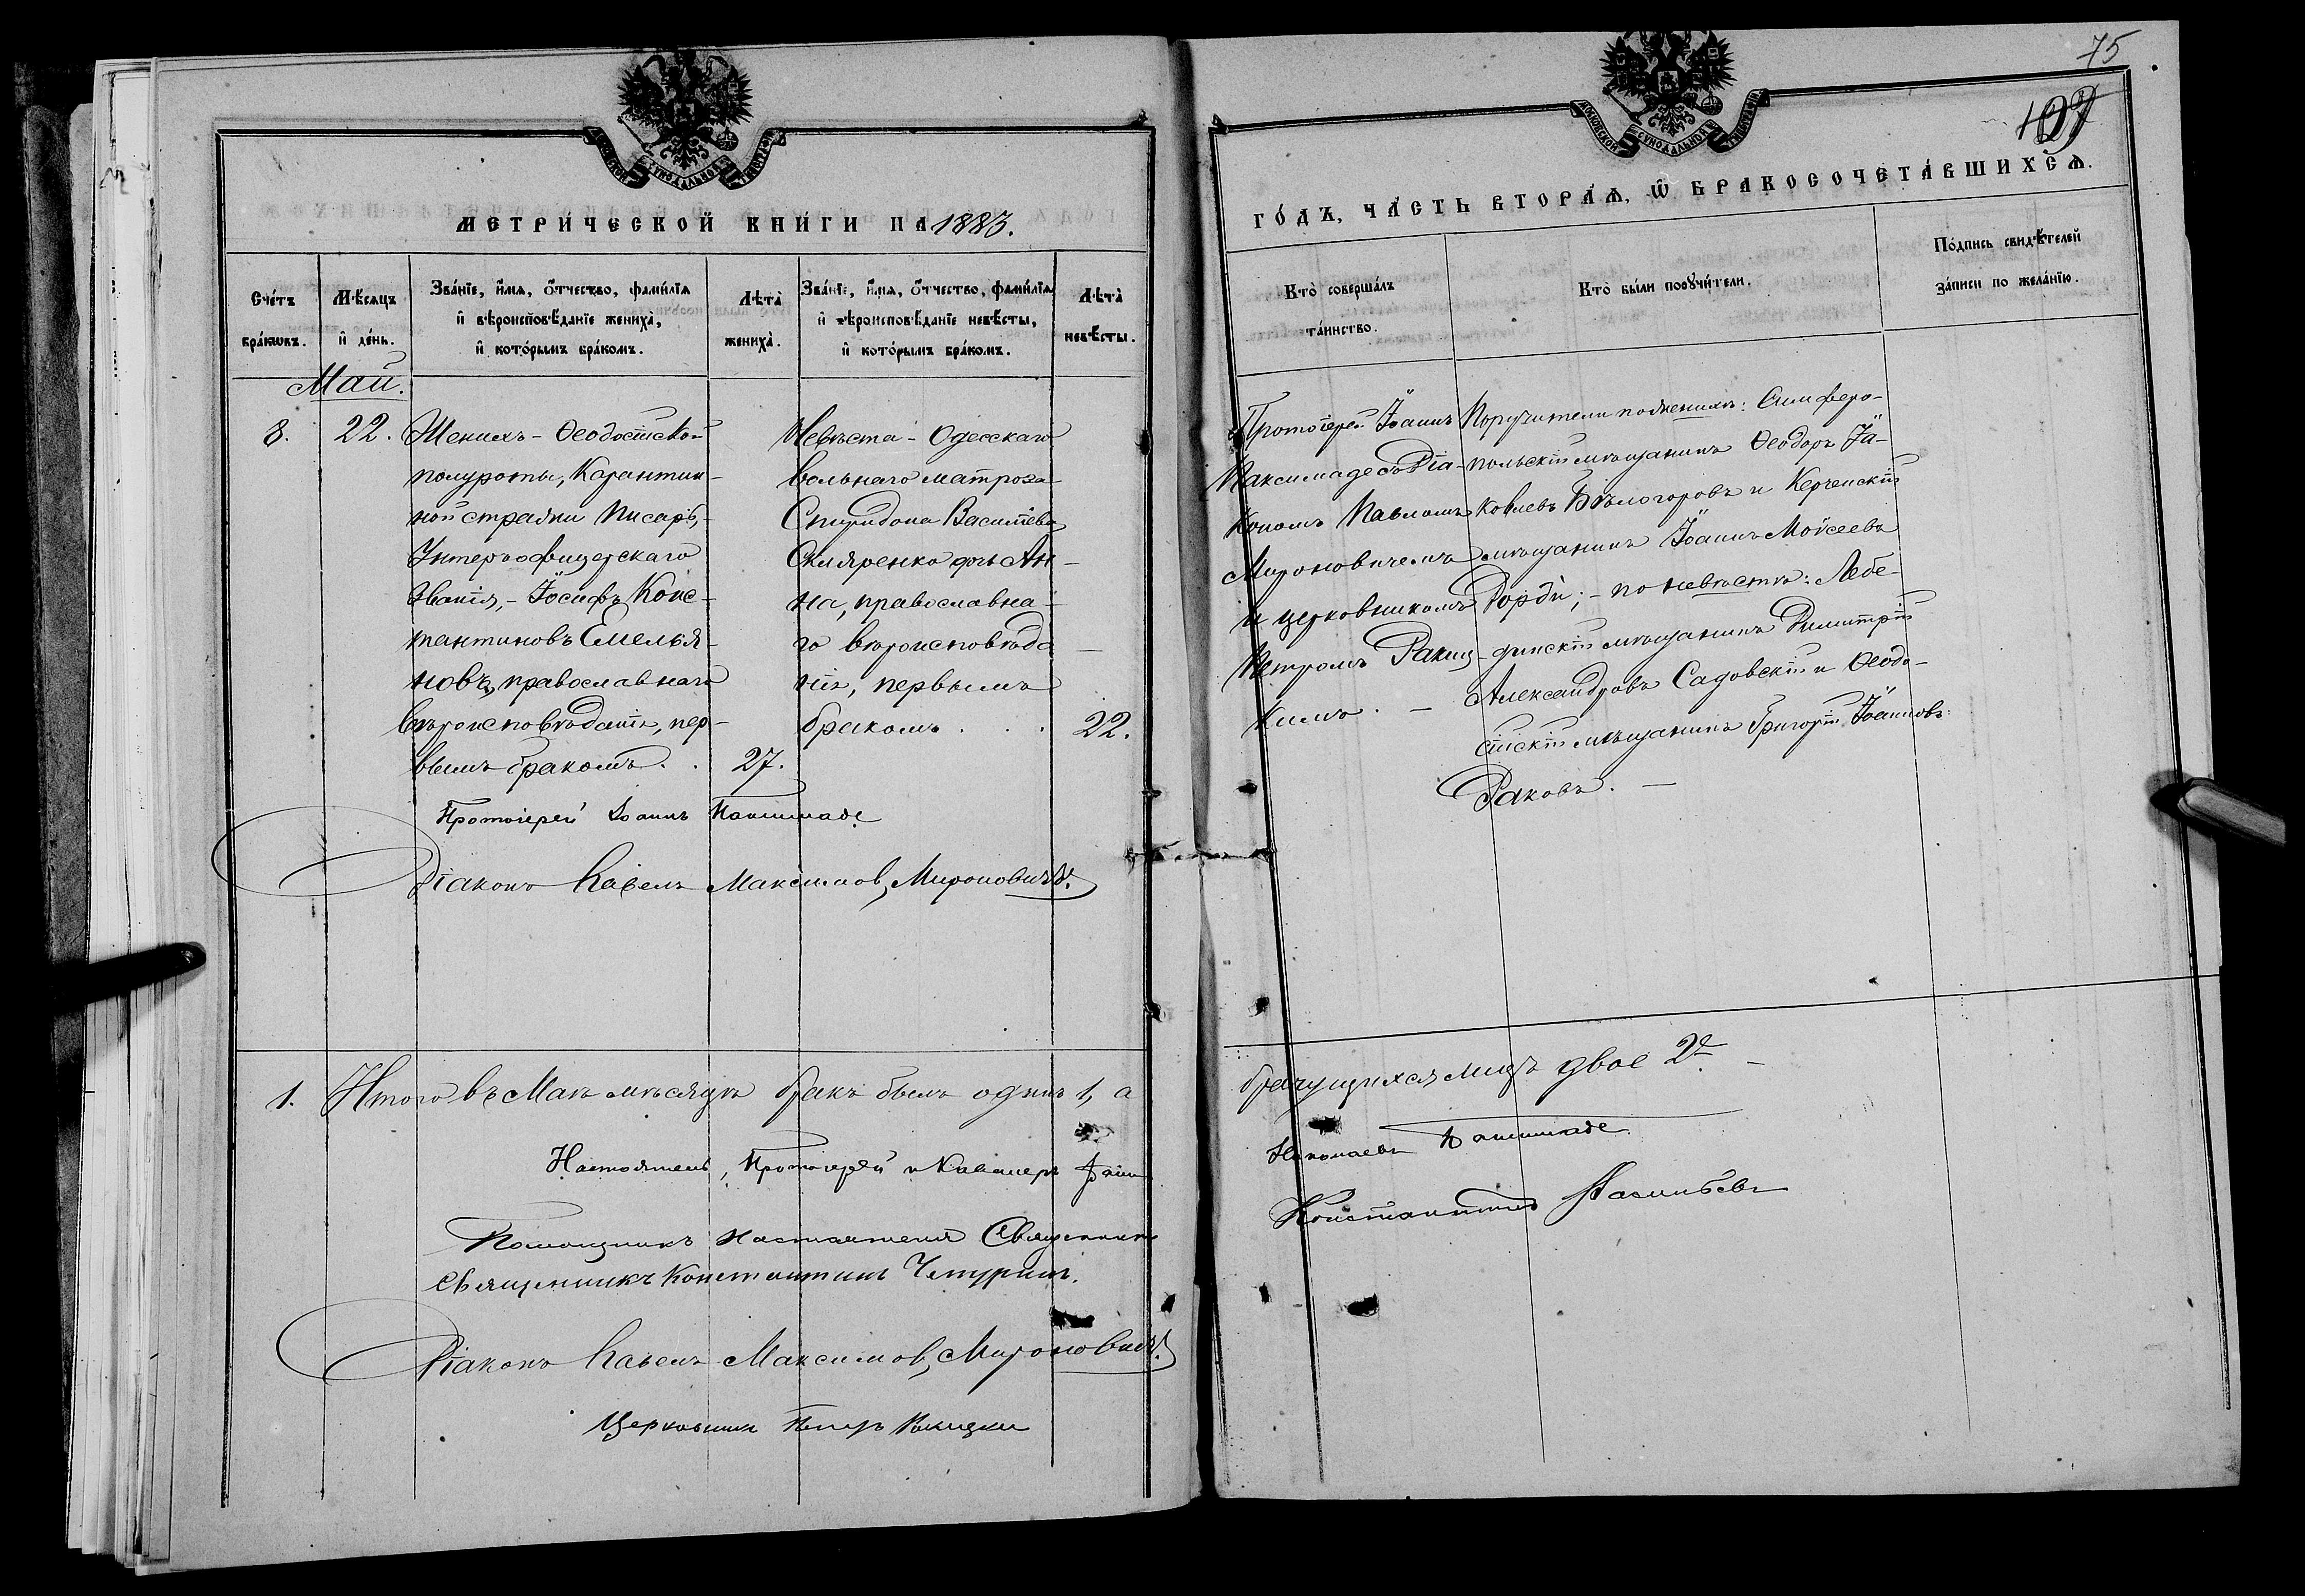 МЕТРИ́ЧЕСКОЙ КНИ́ГИ НА 1883.
Сче́тъ бра́кѡвъ.
Мѣ́сяцъ и҆ де́нь.
Зва́нїе, и҆́мя, о҆́тчество, фами́лїя
и҆ вѣроисповѣ́данїе жениха̀,
и҆ кото́рымъ бра́комъ.
Лѣта̀ жениха̀.
Зва́нїе, и҆́мя, о҆́тчество, фами́лїя
и҆ вѣроисповѣ́данїе невѣ́сты,
и҆ кото́рымъ бра́комъ.
Лѣта̀ невѣ́сты.
Май.
8.
22.
Женихъ - Ѳеодосійской
полуроты, Карантин-
ной стражи писарь,-
Унтеръ офицерскаго
званія, - Іосифъ Конс-
тантиновъ Емелья-
новъ, православнаго
вѣроисповѣданія, пер-
вымъ бракомъ. .
27.
Невѣста - Одесскаго
вольнаго матроза
Спиридона Васильева
Скляренко дочь Ан-
на, православна-
го вѣроисповѣда-
нія, первымъ
бракомъ . . .
22.
Протоіерей Іоаннъ Паксимаде
Діаконъ Павелъ Максимов, Мироновичъ.
1. Итого въ Маѣ мѣсяцѣ бракъ былъ одинъ 1, а
Настоятель, Протоіерей и Кавалеръ Іоаннъ
Помощникъ Настоятеля Священникъ
Священникъ Константинъ
Діаконъ Павелъ Максимов, Мироновичъ.
Церковникъ Петръ Ракицкій
75
ГО́ДЪ, ЧА́СТЬ ВТОРА́Ѧ, Ѡ҆ БРАКОСОЧЕТА́ВШИХСѦ.
Кто̀ соверша́лъ
та́инство.
Кто̀ бы́ли порꙋчи́тели.
По́дпись свидѣ́телей
за́писи по жела́нїю.
Протоіерей Іоаннъ
Паксимаде съ Діа-
кономъ Павломъ
Мироновичемъ
и церковникомъ
Петромъ Ракиц-
кимъ. -
Поручители по женихѣ: Симферо-
польскій мѣщанинъ Ѳеодоръ Іа-
ковлевъ Бѣлогоровъ и Керченскій
мѣщанинъ Іоаннъ Моисеевъ
Дорди; - по невѣстѣ: Лебе-
динскій мѣщанинъ Димитрій
Александровъ Садовскій и Ѳеодо-
сійскій мѣщанинъ Григорій Іоанновъ
Раковъ. -
брачущихся лицъ двое 2е. -
Николаевъ Паксимаде
Константинъ Васильевъ